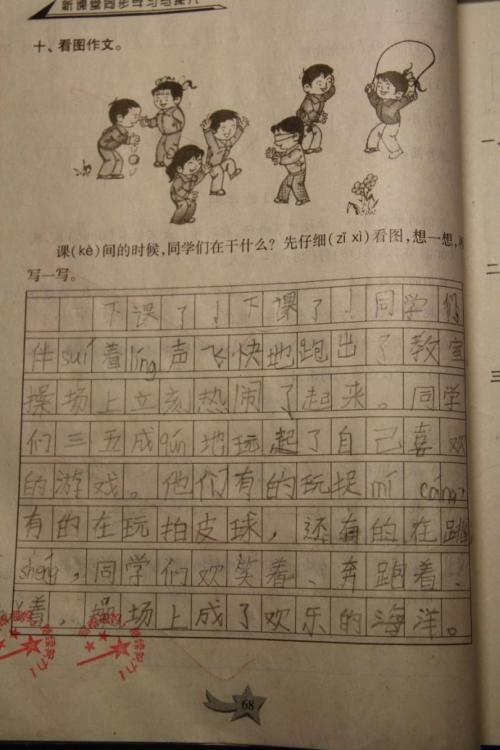 新课堂同步学习与探究
十、看图作文。
课(kè)间的时候,同学们在干什么?先仔细(zǐ xì)看图,想一想,
写一写。
下课了!下课了!同学们
伴suí着líng声飞快地跑出了教室
操场上立刻热闹了起来。同学
们三五成qún地玩起了自己喜欢
的游戏。他们有的玩捉mí cáng,
有的在玩拍皮球,还有的在跳
shéng,同学们欢笑着、奔跑着、
着,操场上成了欢乐的海洋。
68